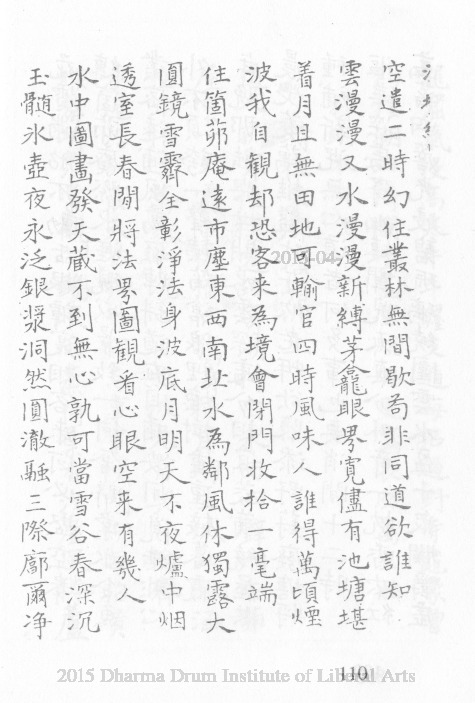 空遣二時幻住叢林無間歇苟非同道欲誰知
雲漫漫又水漫漫新縛茅龕眼界寬儘有池塘堪
着月且無田地可輸官四時風味人誰得萬頃煙
波我自觀却恐客来為境會閉門收拾一毫端
住箇茆庵遠市塵東西南北水為鄰風休獨露大
圓鏡雪霽全彰淨法身波底月明天不夜爐中烟
透室長春閒將法界圖觀看心眼空来有幾人
水中圖畫發天藏不到無心孰可當雪谷春深沉
玉髓氷壺夜永泛銀漿洞然圓澈融三際廓爾净
2015-04
2015 Dharma Drum Institute of Liberal Arts
110